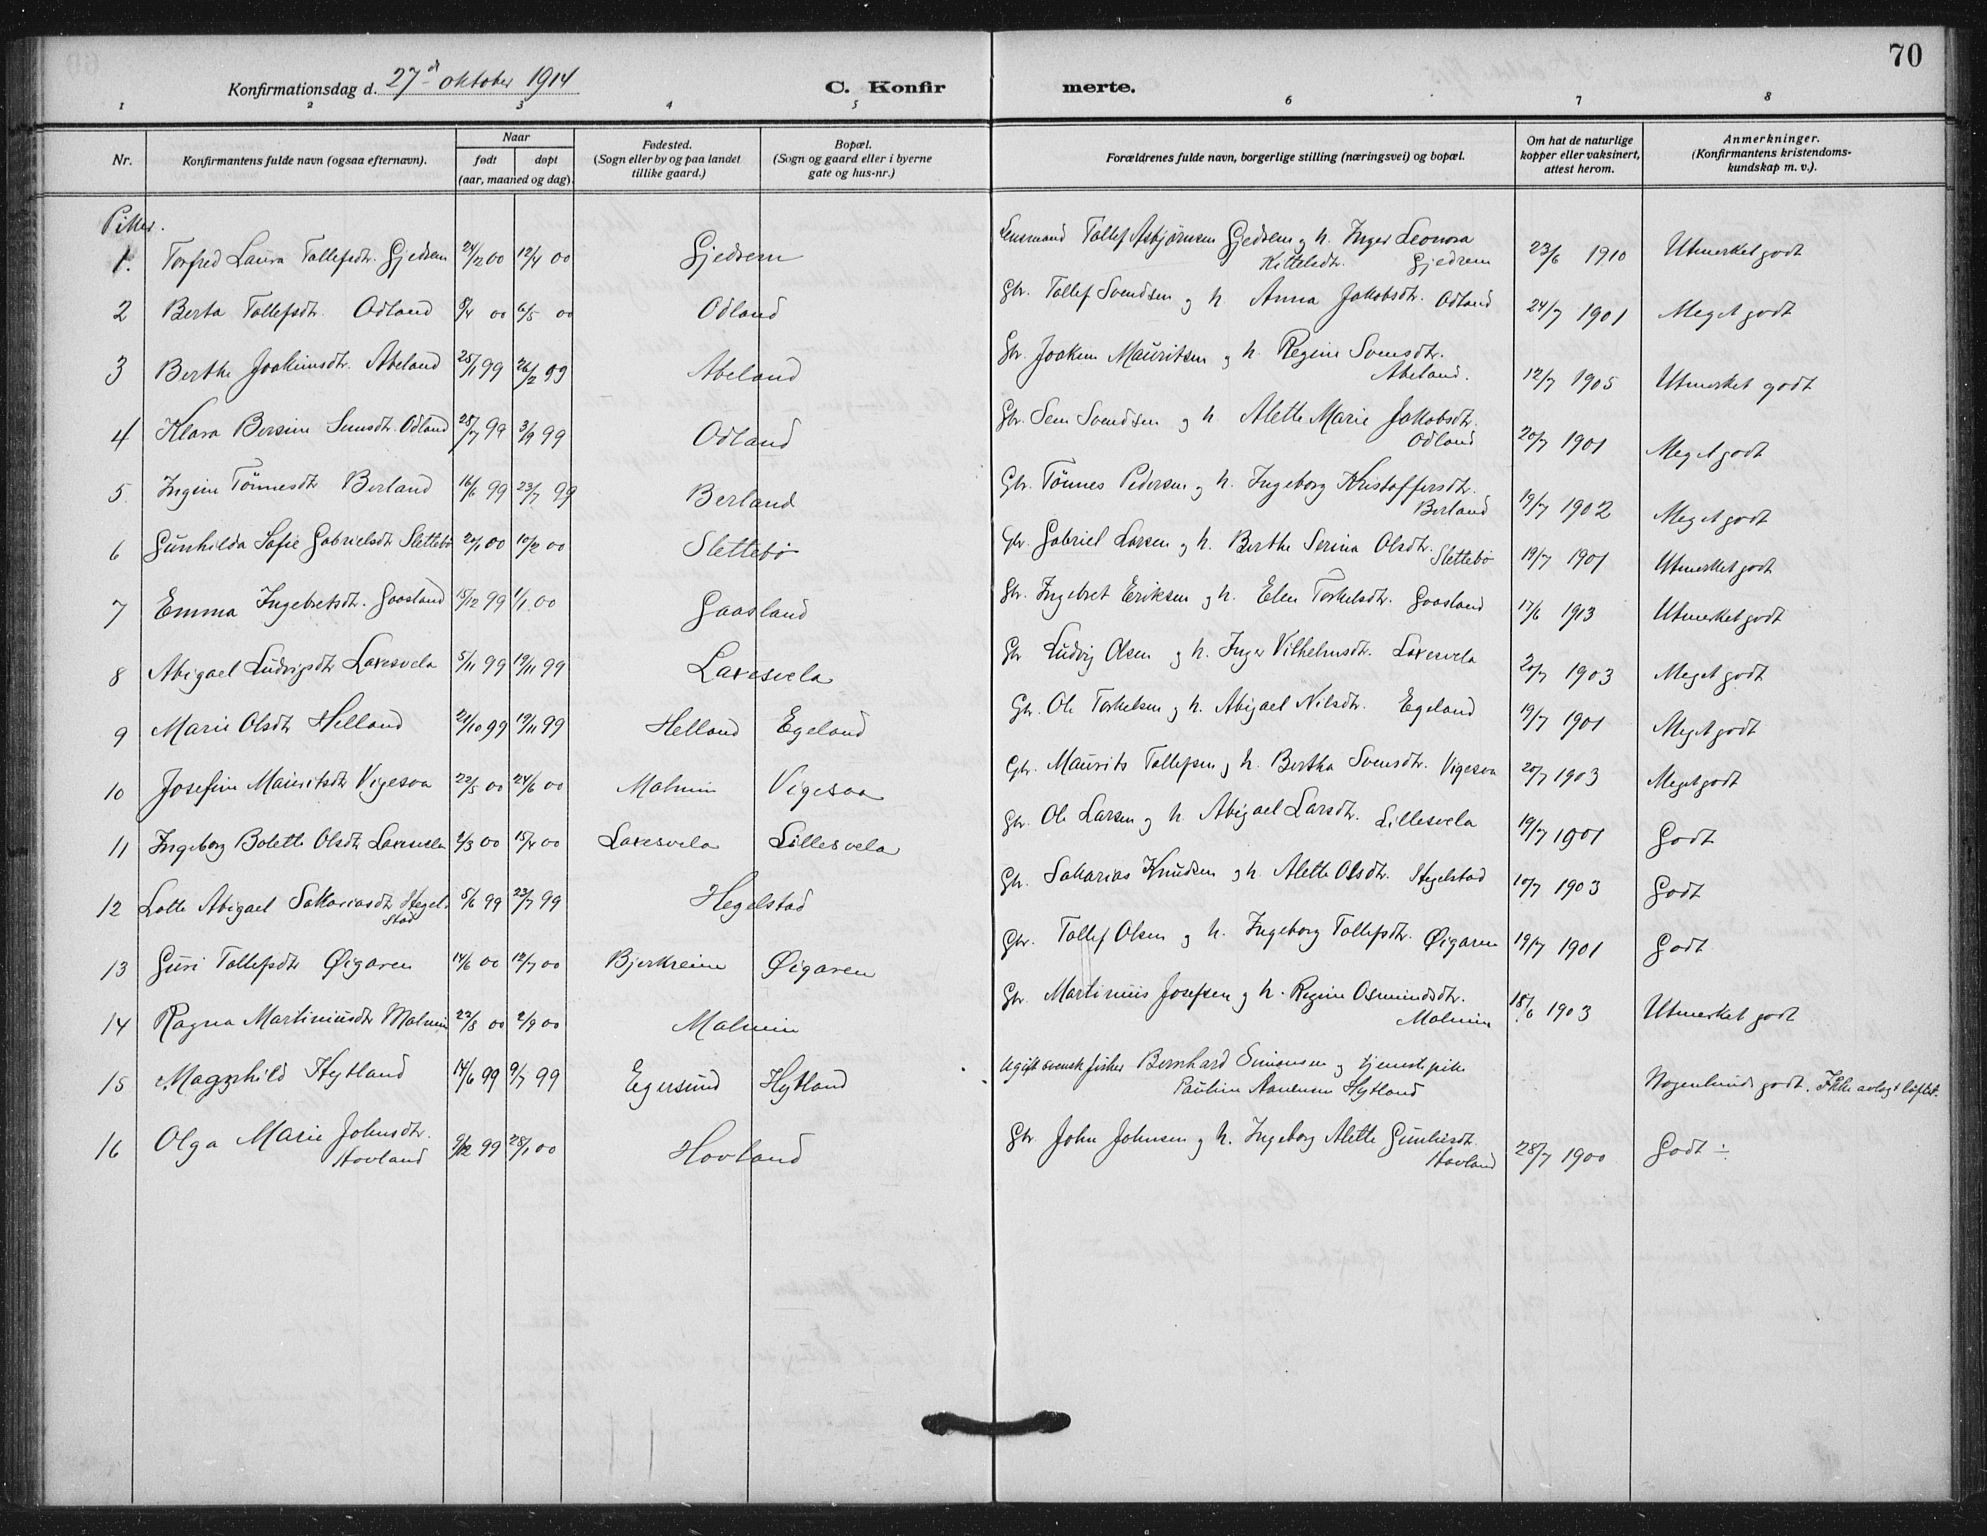 70
Konfirmationsdag d. 27de oktober 1914 C. Konfirmerte.
1 2 3 4 5 6 7 8
Nr. Konfirmantens fulde navn (ogsaa efternavn). Naar født døpt (aar, maaned og dag). Fødested. (Sogn eller by og paa landet tillike gaard.) Bopæl. (Sogn og gaard eller i byerne gate og hus-nr.) Forældrenes fulde navn, borgerlige stilling (næringsvei) og bopæl. Om hat de naturlige kopper eller vaksinert, attest herom. Anmerkninger. (Konfirmantens kristendoms-kundskap m. v.).
Piker.
1. Torfred Laura Tollefsdtr. Gjedrem 24/2 00 12/4 00 Gjedrem Lensmand Tollef Asbjørnsen Gjedrem og h. Inger Leonora Kittelsdtr. Gjedrem 23/6 1910 Utmerket godt
2 Berta Tollefsdtr. Odland 8/4 00 6/5 00 Odland Gbr. Tollef Svendsen og h. Anna Jakobsdtr. Odland 24/7 1901 Meget godt
3 Berthe Joakimsdtr. Abeland 25/1 99 26/2 99 Abeland Gbr. Joakim Mauritsen og h. Regine Svensdtr. Abeland. 12/7 1905 Utmerket godt
4 Klara Bersine Semsdtr. Odland 28/7 99 3/9 99 Odland Gbr. Sem Svendsen og h. Alette Marie Jakobsdtr. Odland 20/7 1901 Meget godt
5 Ingine Tönnesdtr Berland 16/6 99 23/7 99 Berland Gbr. Tönnes Pedersen og h. Ingeborg Kristoffersdtr. Berland 19/7 1902 Meget godt
6 Gunhilda Sofie Gabrielsdtr Slettebø 20/1 00 10/2 00 Slettebø Gbr. Gabriel Larsen og h. Berthe Serina Olsdtr. Slettebø 19/7 1901 Utmerket godt
7 Emma Ingebretsdtr. Gaasland 15/12 99 1/1 00 Gaasland Gbr. Ingebret Eriksen og h. Elen Torkelsdtr. Gaasland 17/6 1913 Utmerket godt
8 Abigael Ludvigsdtr Laxesvela 5/11 99 19/11 99 Laxesvela Gbr Ludvig Olsen og h. Inger Vilhelmsdtr. Laxesvela 20/7 1903 Meget godt
9 Marie Olsdtr Helland 21/10 99 19/11 99 Helland Egeland Gbr. Ole Torkelsen og h. Abigael Nilsdtr. Egeland 19/7 1901 Meget godt
10 Josefine Mauritsdtr Vigesaa 22/5 00 24/6 00 Malmin Vigesaa Gbr. Maurits Tollefsen og h. Bertha Svensdtr. Vigesaa 20/7 1903 Meget godt
11 Ingeborg Bolette Olsdtr Laxesvela 2/3 00 15/4 00 Laxesvela Lillesvela Gbr. Ole Larsen og h Abigael Larsdtr. Lillesvela 19/7 1901 Godt
12 Lotte Abigael Sakariasdtr Hegelstad 5/6 99 23/7 99 Hegelstad Gbr. Sakarias Knudsen og h. Alette Olsdtr. Hegelstad 10/7 1903 Godt
13 Guri Tollefsdtr Øigaren 14/6 00 12/7 00 Bjerkreim Øigaren Gbr. Tollef Olsen og h. Ingeborg Tollefsdtr. Øigaren 19/7 1901 Godt
14 Ragna Martiniusdtr Malmin 22/8 00 2/9 00 Malmin Gbr. Martinius Josefsen og h. Regine Osmundsdtr. Malmin 18/6 1903 Utmerket godt
15 Magnhild Hytland 14/6 99 9/7 99 Egersund Hytland Ugift svensk fisker Bernhard Simonsen og tjenestepike Pauline Aanensen Hytland Nogenlunde godt. Ikke avlagt løftet.
16 Olga Marie Johnsdtr. Hovland 9/12 99 28/1 00 Hovland Gbr John Johnsen og h. Ingeborg Alette Gunleisdtr. Hovland 28/7 1900 Godt ÷